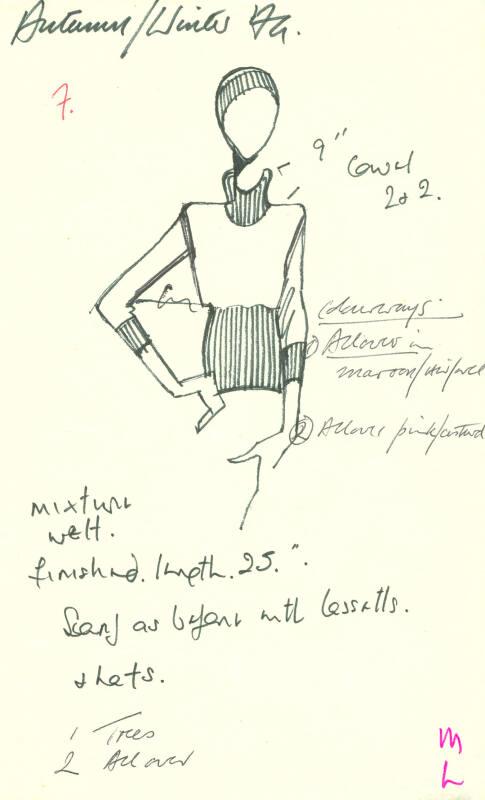 Autumn/Winter 74.
7.
9"
Cowl
2x2.
Colourways:
① Allover in
maroon/
② Allover pink/custard
mixture
welt.
finished. length. 25.".
Scarf as before with tassells.
& hats.
1 Trees
2 Allover
M
L